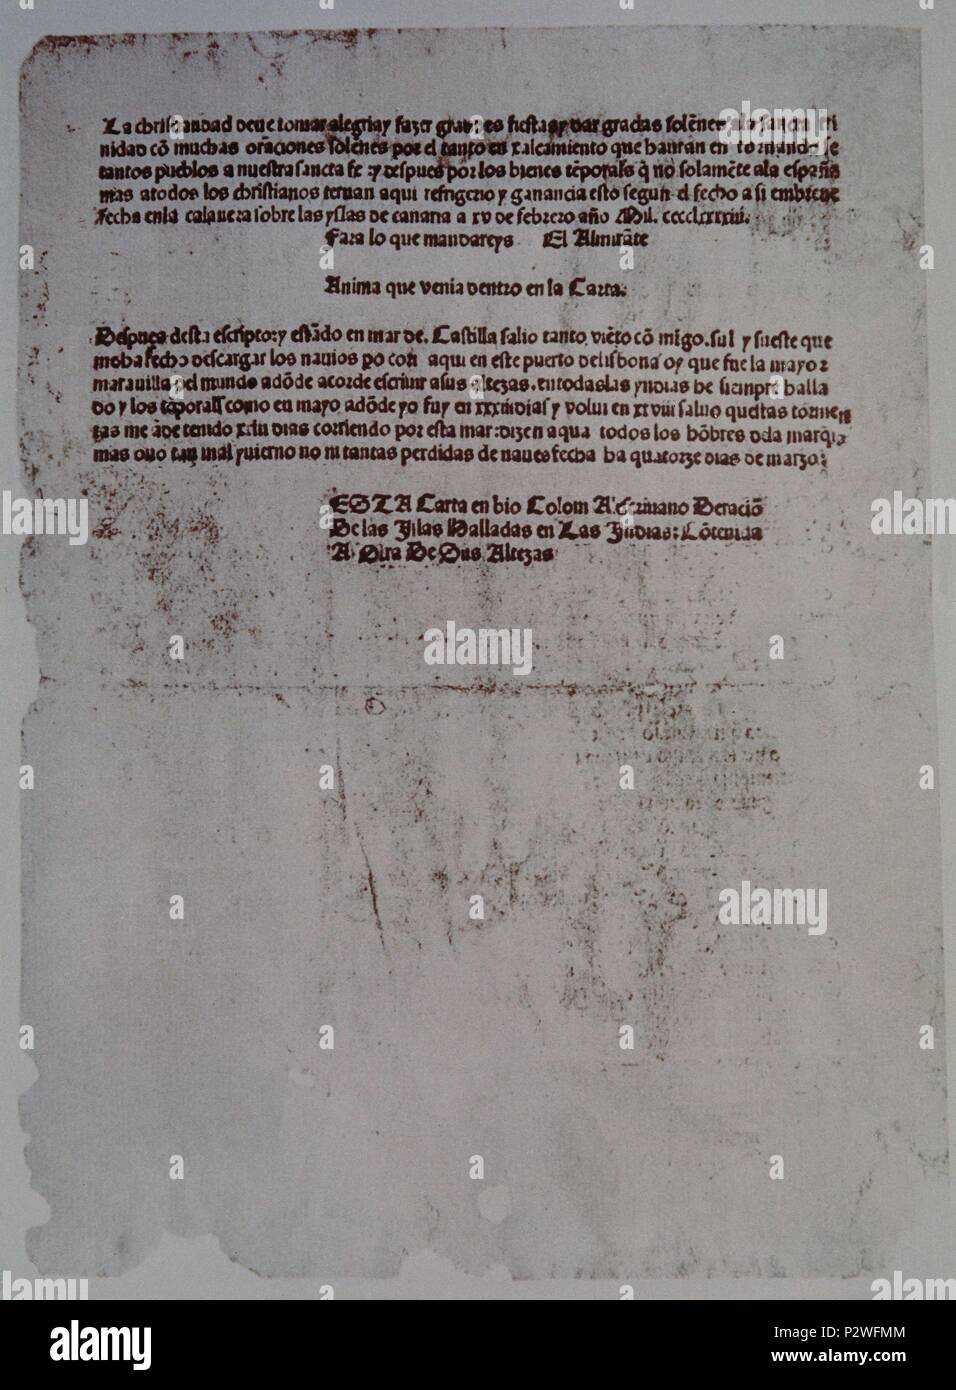 La christiandad deue tomar alegria y fazer grandes fiestas y dar gracias solẽnes ala sancta tri
nidad cõ muchas oraciones solẽnes por el tanto en xalçamiento que hauran en tornando se
tantos pueblos a nuestra sancta fe :y despues por los bienes tẽporales q̃ no solamẽte ala españa
mas atodos los christianos ternan aqui refrigerio y ganancia esto segun el fecho a si embreue
fecha enla calauera sobre las yslas de canaria a xv de febrero año Mil. cccclxxxxiii.
Fara lo que mandareys El Almirãte
Anima que venia dentro en la Carta.
Despues desta escripto: y estãdo en mar de. Castilla salio tanto viẽto cõ migo. sul y sueste que
meha fecho descargar los nauios po cori aqui en este puerto delisbona oy que fue la mayor
marauilla del mundo adõde acorde escriuir asus altezas. entodas las yndias he siempre halla
do y los tẽporales como en mayo adõde yo fuy en xxxiii dias y volui en xxviii saluo questas tormen
tas me ãde tenido xiiii dias corriendo por esta mar: dizen aqua todos los hõbres dela mar q̃ ja
mas ouo tan mal yuierno no ni tantas perdidas de naues fecha ha quatorze dias de março:
ESTA Carta en bio Colom A'escriuano Deraciõ
De las Islas Halladas en Las Indias: Cõtenida
A Otra De Sus Altezas
alamy
alamy
alamy
alamy
Image ID: P2WFMM
www.alamy.com